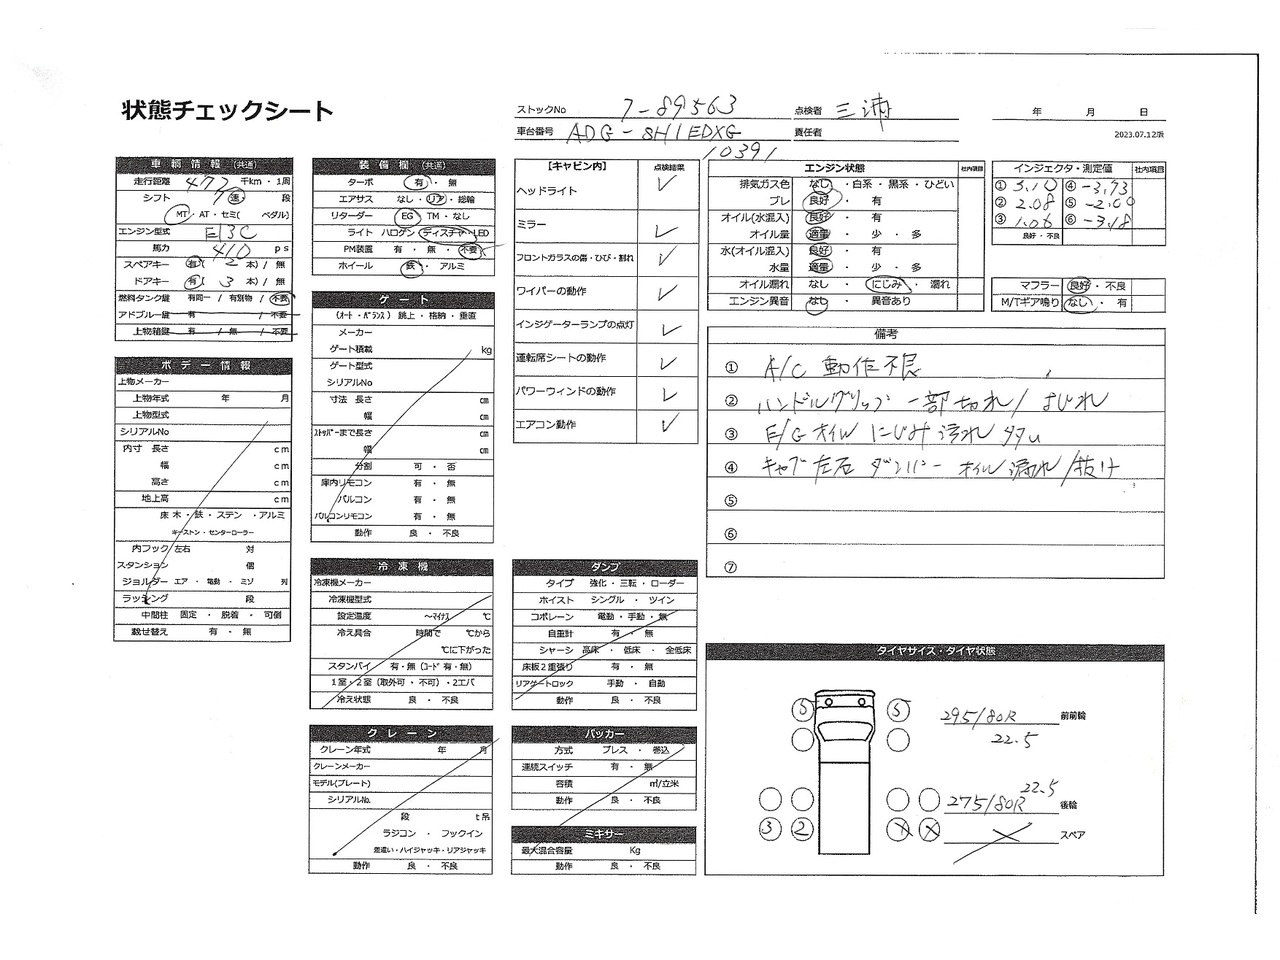 状態チェックシート
ストックNo 7-89563 点検者 三浦 年 月 日
車台番号 ADG-8H1EDXG 責任者 2023.07.12版
10391
車輌情報 (共通)
走行距離 472 千km・1周
シフト 7 速 段
MT・AT・セミ( ペダル)
エンジン型式 E13C
馬力 410 ps
スペアキー 有( 2 本) / 無
ドアキー 有( 3 本) / 無
燃料タンク鍵 有同一 / 有別物 / 不要
アドブルー鍵 有 / 不要
上物箱鍵 有 / 無 / 不要
ボデー情報
上物メーカー
上物年式 年 月
上物型式
シリアルNo
内寸 長さ cm
幅 cm
高さ cm
地上高 cm
床 木・鉄・ステン・アルミ
キーストン・センターローラー
内フック 左右 対
スタンション 個
ジョルダー エア・電動・ミゾ 列
ラッシング 段
中間柱 固定・脱着・可倒
載せ替え 有・無
装備欄 (共通)
ターボ 有・無
エアサス なし・リア・総輪
リターダー EG TM・なし
ライト ハロゲン・ディスチャ・LED
PM装置 有・無・不要
ホイール 鉄・アルミ
ゲート
(オート・バランス) 跳上・格納・垂直
メーカー
ゲート積載 kg
ゲート型式
シリアルNo
寸法 長さ cm
幅 cm
ストッパーまで長さ cm
幅 cm
分割 可・否
庫内リモコン 有・無
バルコン 有・無
バルコンリモコン 有・無
動作 良・不良
冷凍機
冷凍機メーカー
冷凍機型式
設定温度 ～マイナス ℃
冷え具合 時間で ℃から
℃に下がった
スタンバイ 有・無 (コード 有・無)
1室・2室 (取外可・不可)・2エバ
冷え状態 良・不良
クレーン
クレーン年式 年 月
クレーンメーカー
モデル(プレート)
シリアルNo.
段 t吊
ラジコン・フックイン
差違い・ハイジャッキ・リアジャッキ
動作 良・不良
【キャビン内】 点検結果
ヘッドライト ✓
ミラー ✓
フロントガラスの傷・ひび・割れ ✓
ワイパーの動作 ✓
インジゲーターランプの点灯 ✓
運転席シートの動作 ✓
パワーウィンドの動作 ✓
エアコン動作 ✓
ダンプ
タイプ 強化・三転・ローダー
ホイスト シングル・ツイン
コボレーン 電動・手動・無
自重計 有・無
シャーシ 高床・低床・全低床
床板2重張り 有・無
リアゲートロック 手動・自動
動作 良・不良
パッカー
方式 プレス・巻込
連続スイッチ 有・無
容積 ㎥/立米
動作 良・不良
ミキサー
最大混合容量 Kg
動作 良・不良
エンジン状態 社内項目
排気ガス色 なし・白系・黒系・ひどい
ブレ 良好・有
オイル(水混入) 良好・有
オイル量 適量・少・多
水(オイル混入) 良好・有
水量 適量・少・多
オイル漏れ なし・にじみ・漏れ
エンジン異音 なし・異音あり
インジェクタ・測定値 社内項目
① 3.10 ④ -3.93
② 2.08 ⑤ -2.00
③ 1.06 ⑥ -3.48
良好・不良
マフラー 良好・不良
M/Tギア鳴り なし・有
備考
① A/C 動作不良
② ハンドルグリップ 一部切れ/よじれ
③ E/G オイルにじみ汚れ タタ
④ キャブ左右 ダンパー オイル漏れ/抜け
⑤
⑥
⑦
タイヤサイズ・タイヤ状態
5 5 295/80R 前前輪
22.5
22.5
275/80R 後輪
3 2 スペア